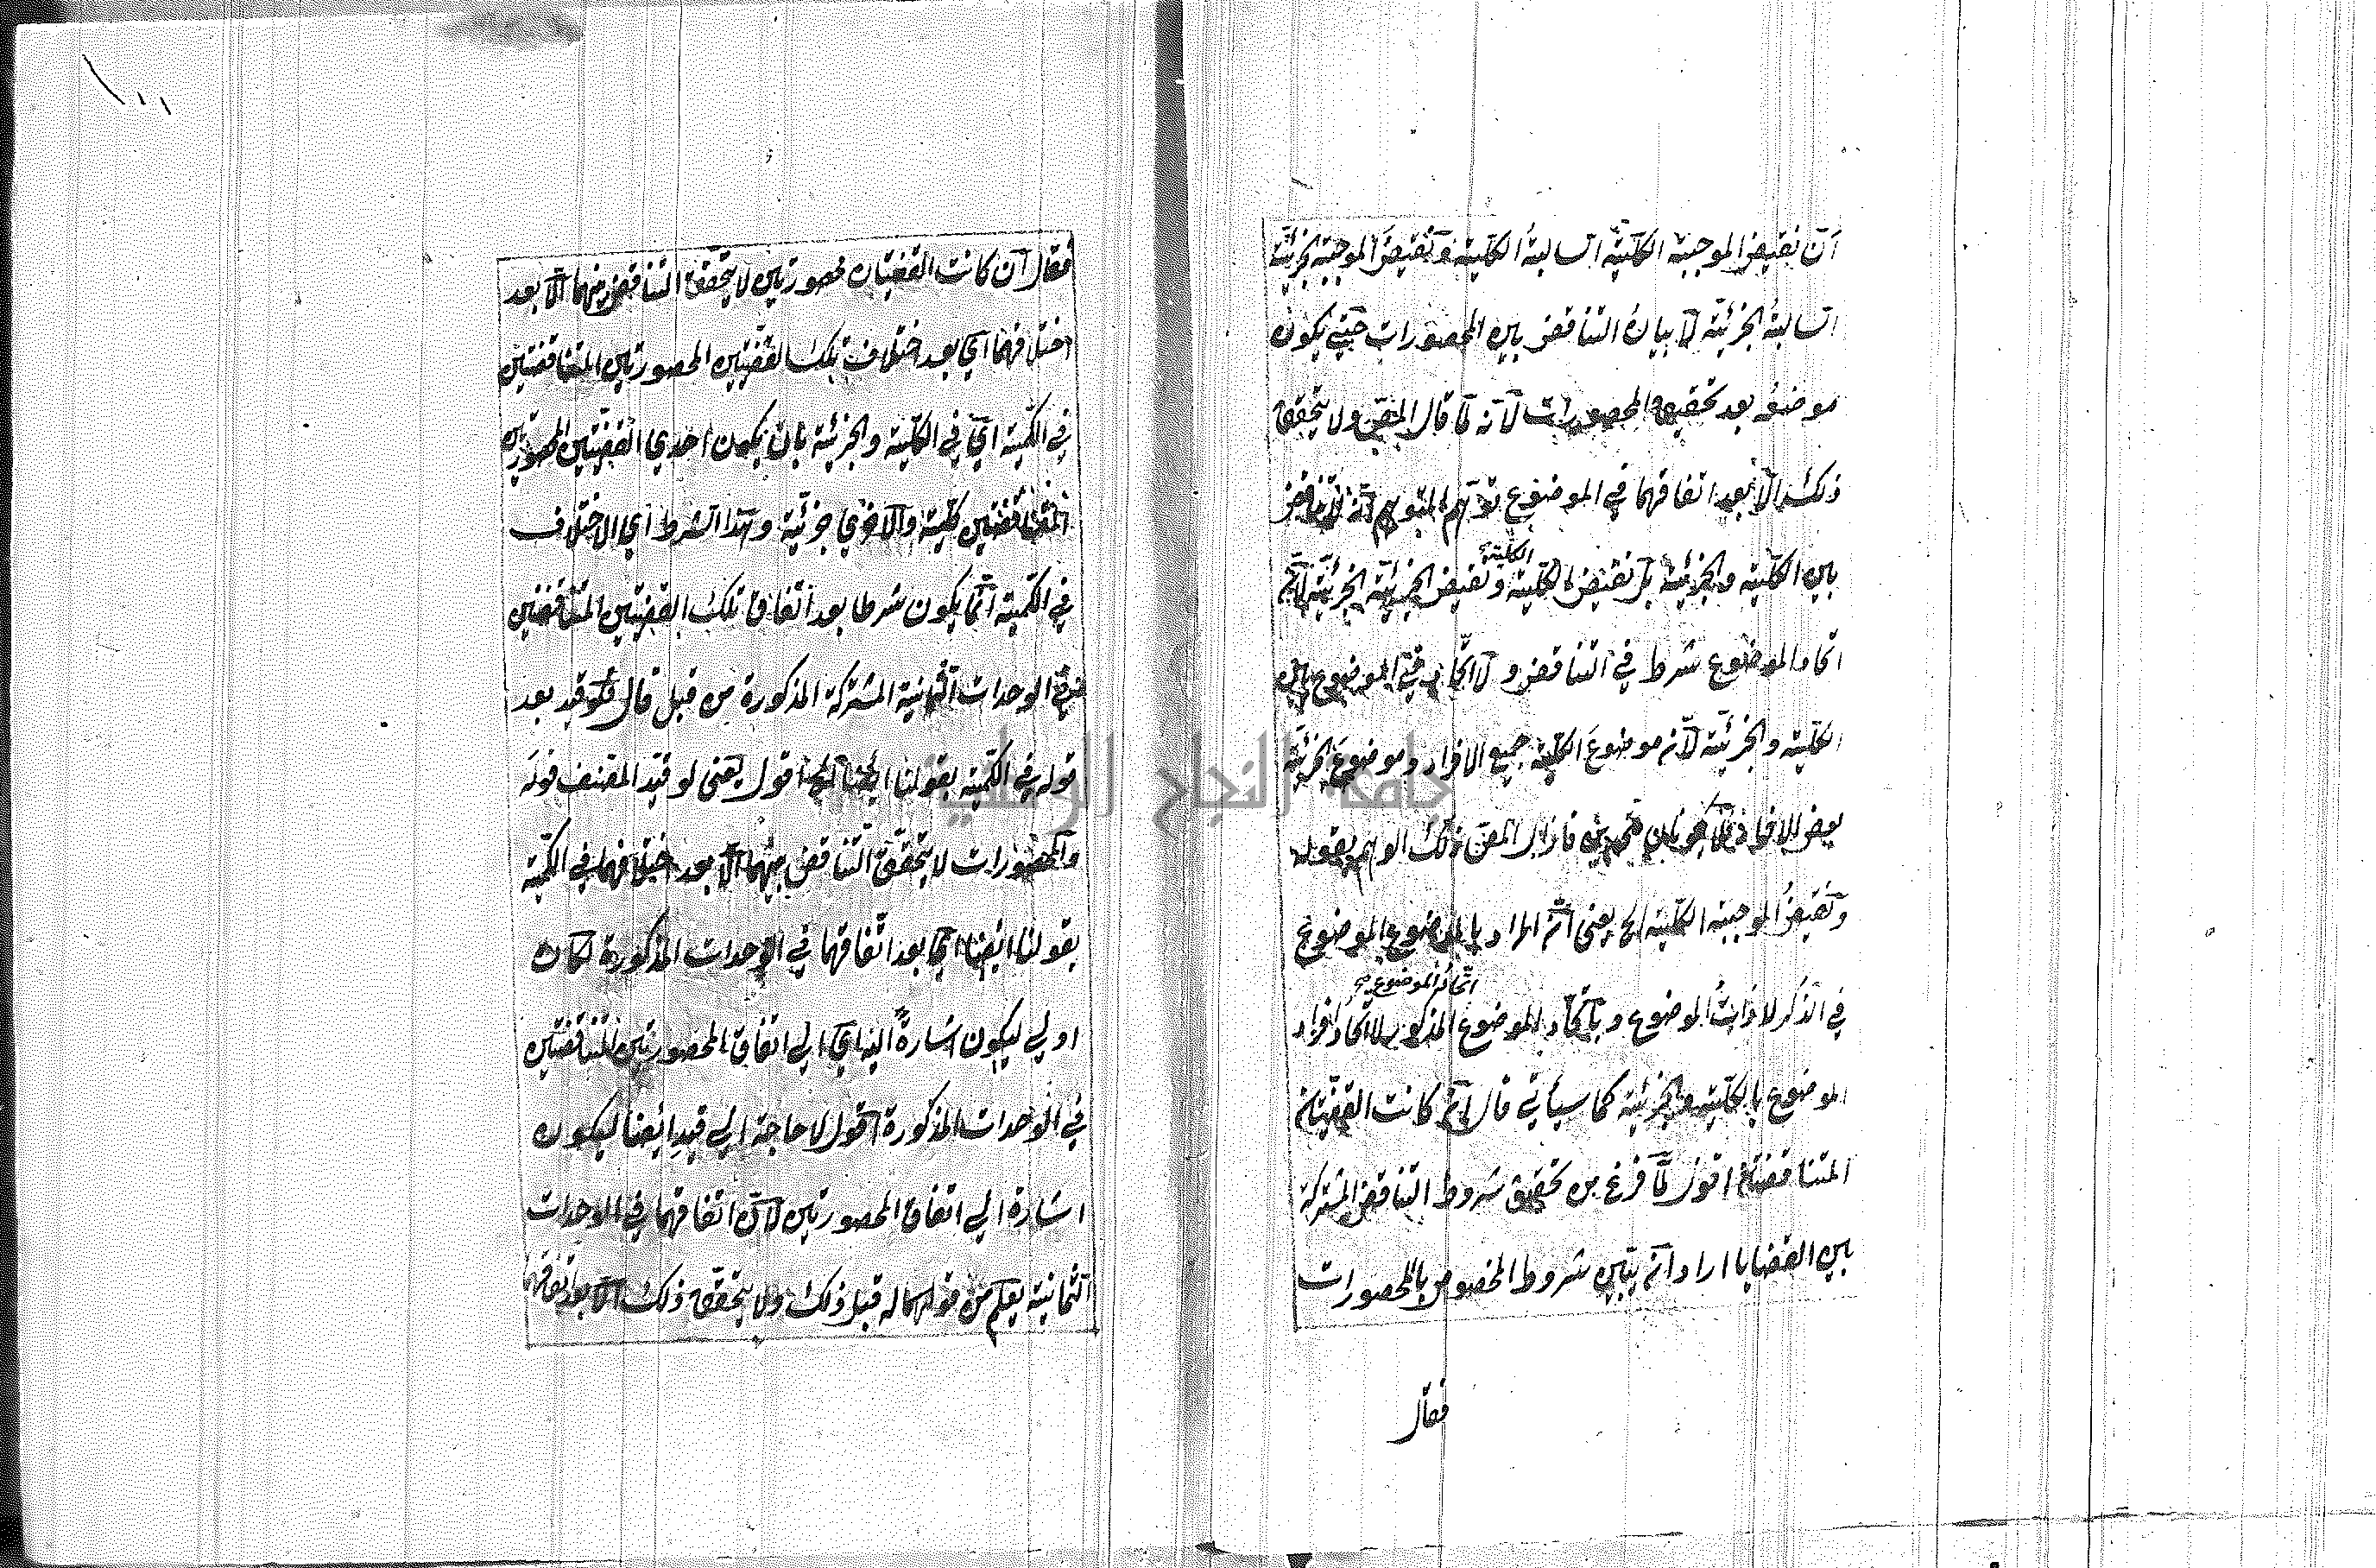 ان نقيض الموجبة الكلية السالبة الكلية ونقيض الموجبة الجزئية
السالبة الجزئية لا بيان التناقض بين المحصورات حتى يكون
موضعه بعد تحقيق المحصورات لانه لما قال المص ولا يتحقق
ذلك الا بعد اتفاقهما في الموضوع توهم المتوهم انه لا تناقض
بين الكلية والجزئية بل نقيض الكلية الكلية ونقيض الجزئية الجزئية لان
اتحاد الموضوع شرط في التناقض ولا اتحاد في الموضوع بين
الكلية والجزئية لان موضوع الكلية جميع الافراد وموضوع الجزئية
بعض الافراد فازال المص ذلك الوهم بقوله
ونقيض الموجبة الكلية الخ يعني ان المراد بالموضوع الموضوع
في الذكر لا ذات الموضوع وباتحاد الموضوع اتحاد الموضوع المذكور لا اتحاد افراد
الموضوع بالكلية والجزئية كما سيأتي قال ان كانت القضيتان
المتناقضتان اقول لما فرغ من تحقيق شروط التناقض المشتركة
بين القضايا اراد ان يبين شروط المخصوص بالمحصورات
فقال
١٠٠
فقال ان كانت القضيتان محصورتين لا يتحقق التناقض بينهما الا بعد
اختلافهما اي بعد اختلاف تلك القضيتين المحصورتين المتناقضتين
في الكمية اي في الكلية والجزئية بان يكون احدي القضيتين المحصورتين
المتناقضتين كلية والاخري جزئية وهذا الشرط اي الاختلاف
في الكمية انما يكون شرطا بعد اتفاق تلك القضيتين المتناقضتين
في الوحدات الثمانية المشتركة المذكورة من قبل قال فلو قيد بعد
قوله في الكمية بقولنا ايضا الخ اقول يعني لو قيد المصنف قوله
والمحصورات لا يتحقق التناقض بينهما الا بعد اختلافهما في الكمية
بقولنا ايضا اي بعد اتفاقهما في الوحدات المذكورة لكان
اولي ليكون اشارة اليه اي الي اتفاق المحصورتين المتناقضتين
في الوحدات المذكورة اقول لا حاجة الي قيد ايضا ليكون
اشارة الي اتفاق المحصورتين لان اتفاقهما في الوحدات
الثمانية يعلم من قبل ذلك ولا يتحقق ذلك الا بعد اتفاقهما
جامعة النجاح الوطنية